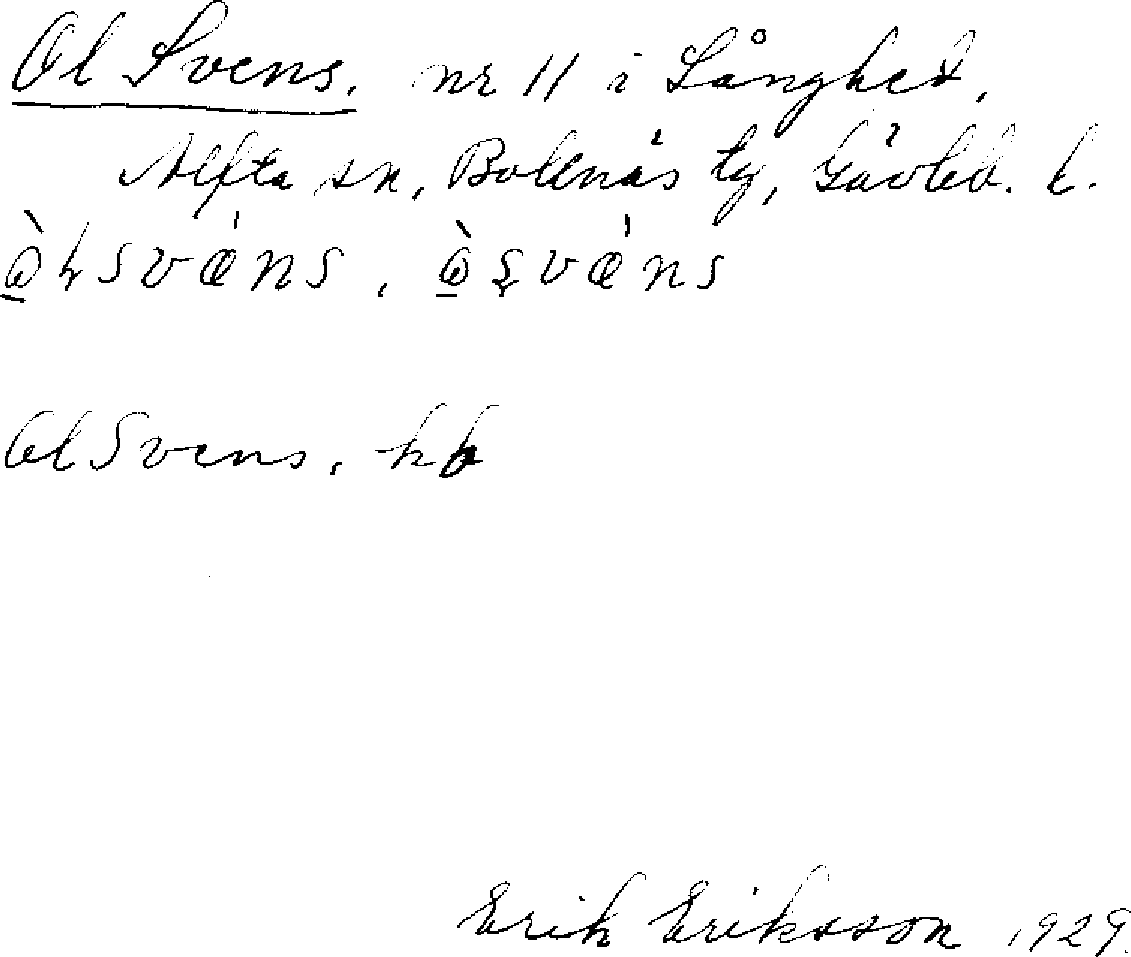 Ol Svens. nr 11 i Långhed,
Alfta sn, Bollnäs tg, Gävleb. l.
Ol Svens, kb
Erik Eriksson 1929.